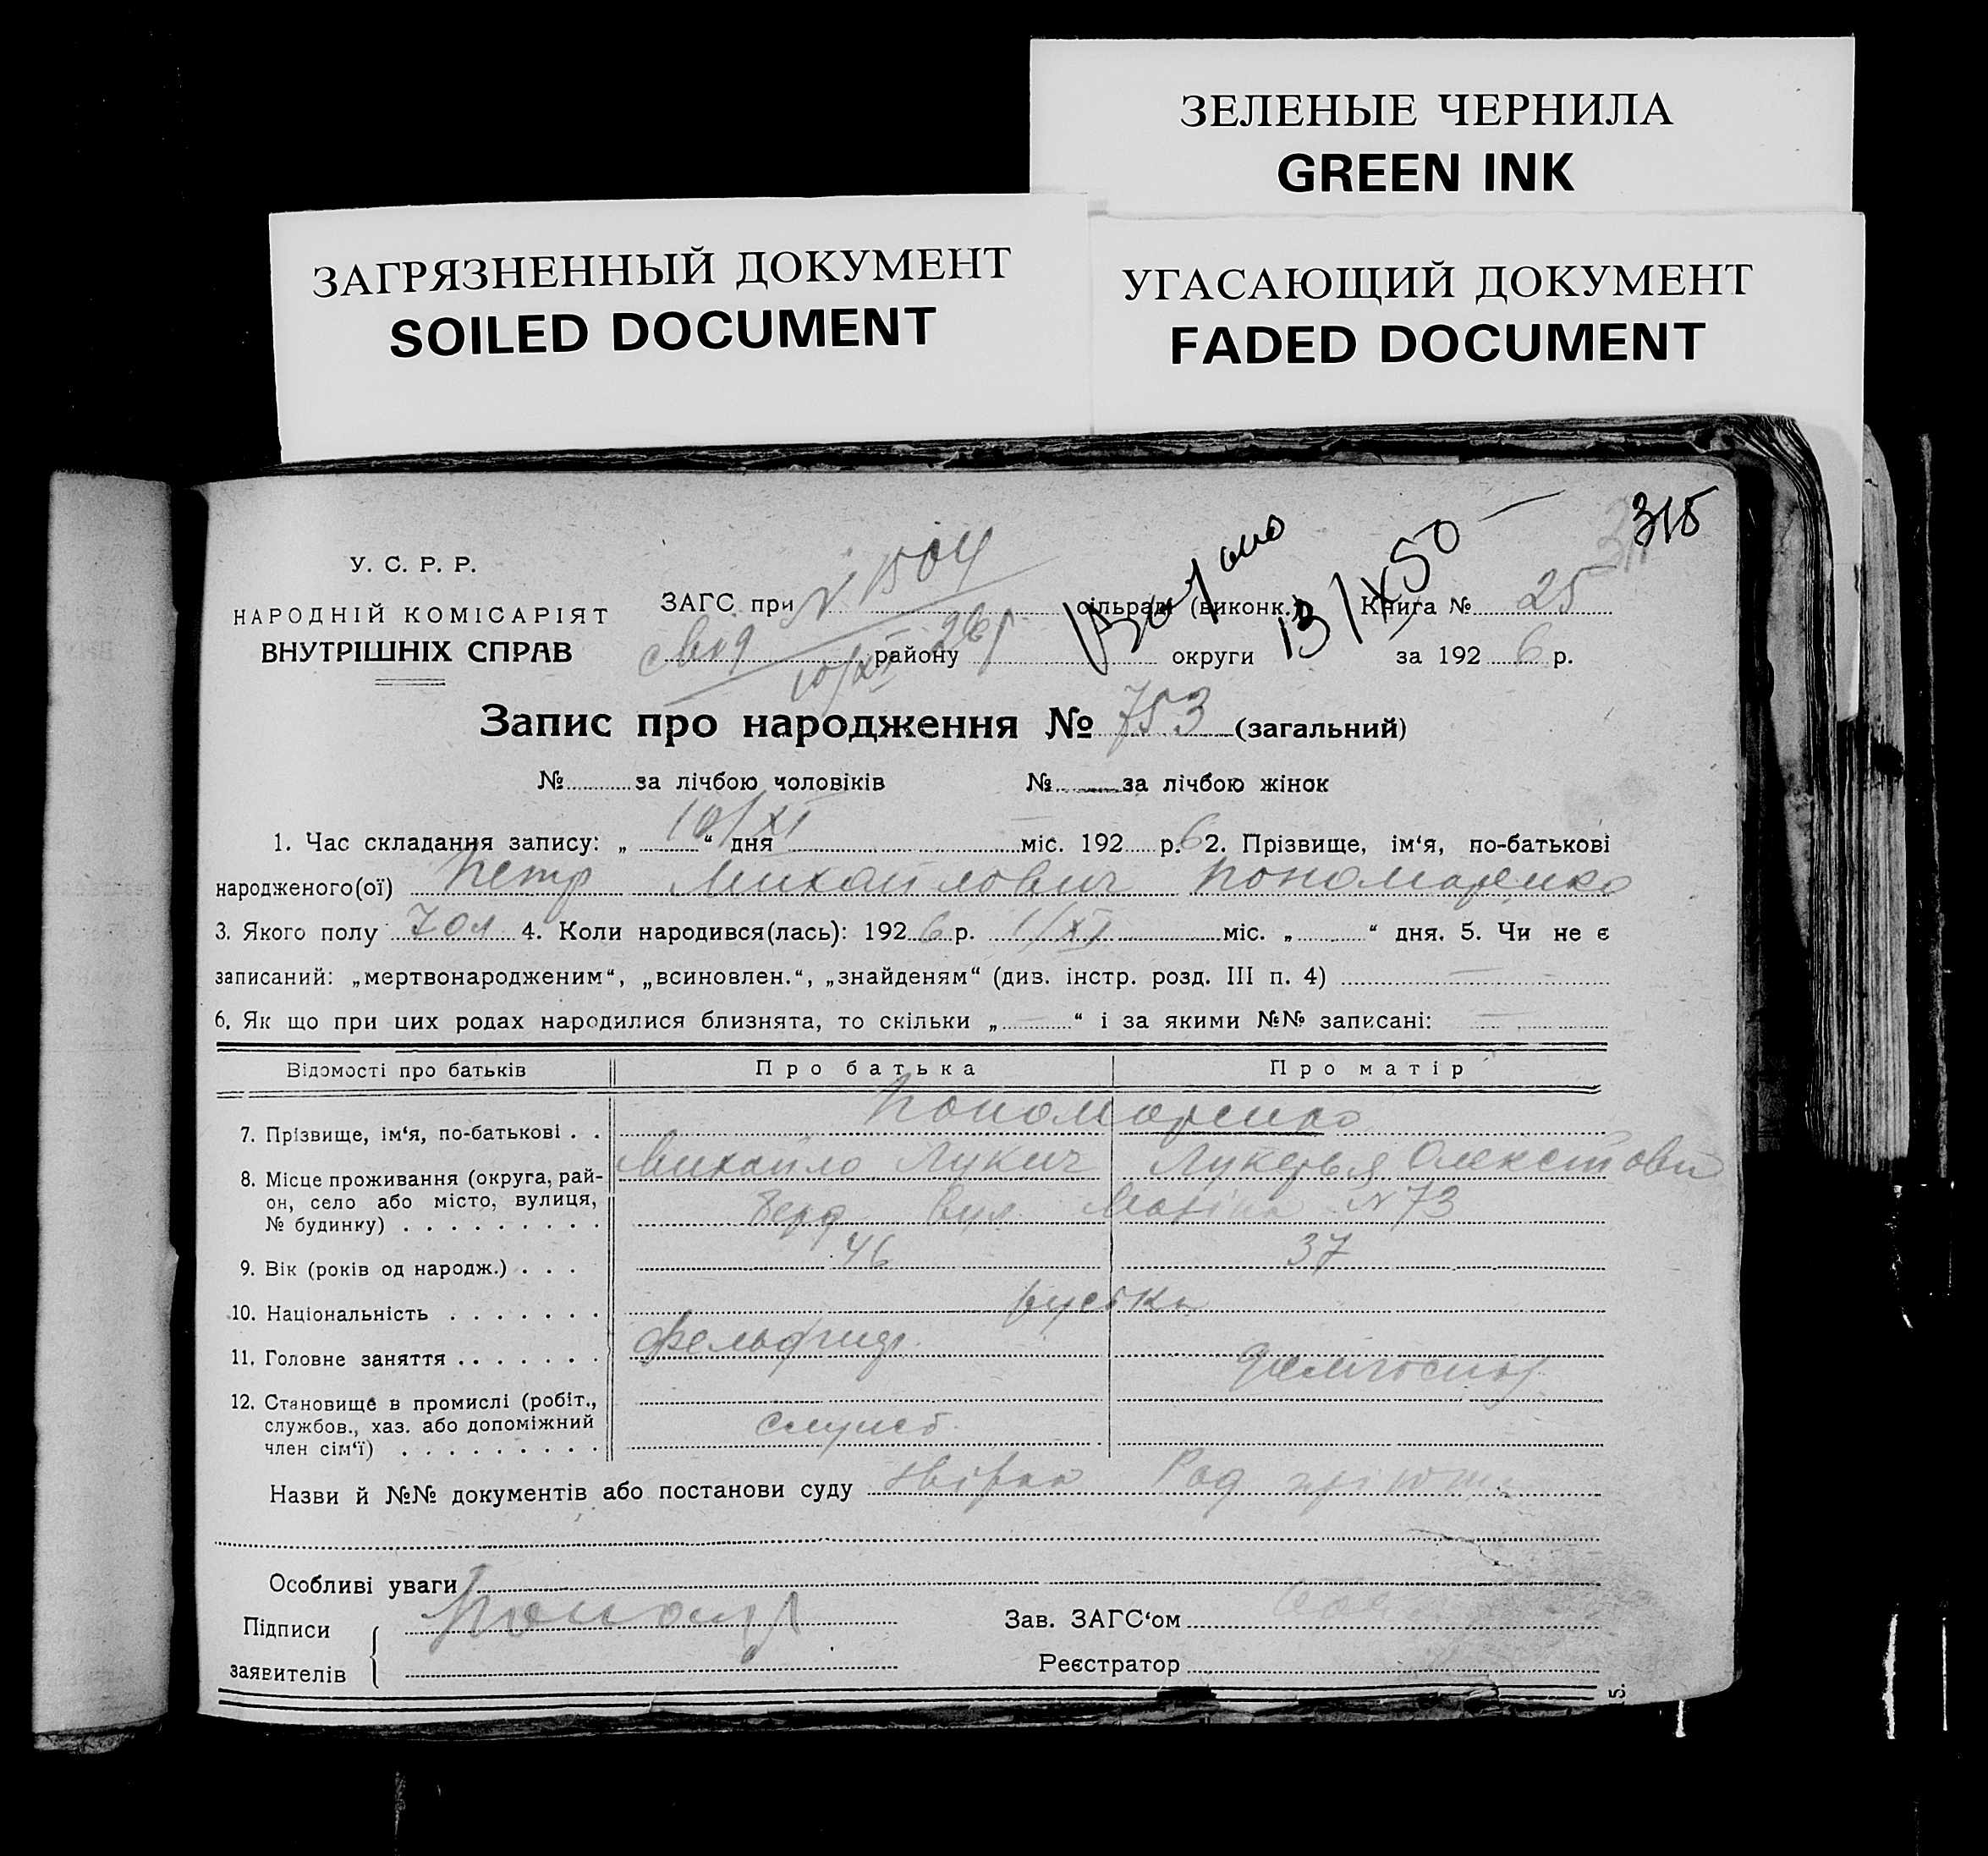 ЗЕЛЕНЫЕ ЧЕРНИЛА
GREEN INK
ЗАГРЯЗНЕННЫЙ ДОКУМЕНТ
SOILED DOCUMENT
УГАСАЮЩИЙ ДОКУМЕНТ
FADED DOCUMENT
315
У. С. Р. Р.
НАРОДНІЙ КОМІСАРІЯТ
ВНУТРІШНІХ СПРАВ
ЗАГС при N 1504 сільраді (виконк.) Книга № 25
району округи за 1926 р.
свід 10/XI 26 р
13/X 50
Запис про народження № 753 (загальний)
№ за лічбою чоловіків № за лічбою жінок
1. Час складання запису: „ 10/XI “ дня міс. 192 р. 6 2. Прізвище, ім‘я, по-батькові
народженого(ої) Петр Михайлович Пономаренко
3. Якого полу чол 4. Коли народився(лась): 1926 р. 1/XI міс. „ “ дня. 5. Чи не є
записаний: „мертвонародженим“, „всиновлен.“, „знайденям“ (див. інстр. розд. III п. 4) —
6. Як що при цих родах народилися близнята, то скільки „ — “ і за якими №№ записані: —
Відомості про батьків Про батька Про матір
7. Прізвище, ім‘я, по-батькові . . Пономаренко
Михайло Лукич Лукерья
8. Місце проживання (округа, рай-
он, село або місто, вулиця,
№ будинку) . . . . . . . . . вул. N 73
9. Вік (років од народж.) . . . 46 37
10. Національність . . . . . . . руська
11. Головне заняття . . . . . . . Фельдшер
12. Становище в промислі (робіт.,
службов., хаз. або допоміжний
член сім‘ї) . . . . . . . . . службов
Назви й №№ документів або постанови суду
Особливі уваги
Підписи
заявителів
Зав. ЗАГС‘ом
Реєстратор
5.